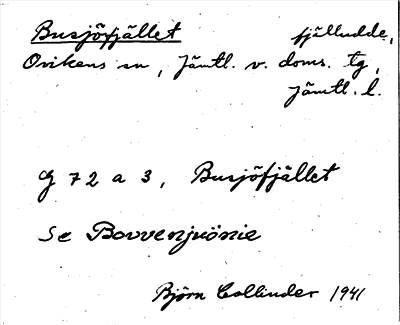 Busjöfjället fjälludde,
Ovikens sn, Jämtl. v. doms. tg,
Jämtl. l.
G 72 a 3, Busjöfjället
Se Bovvenjuönie
Björn Collinder 1941